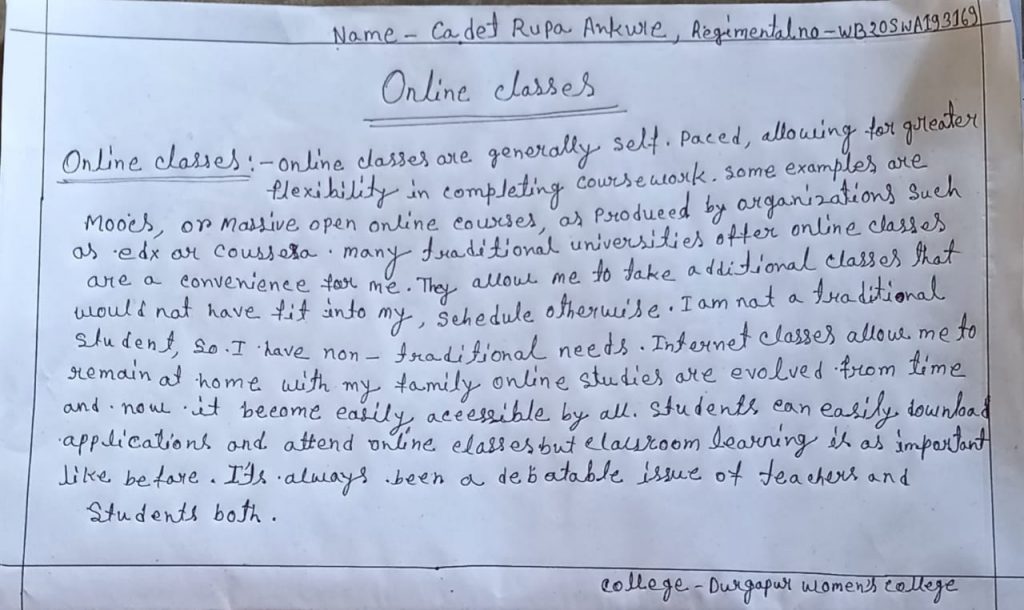 Name - Cadet Rupa Ankure, Regimental no - WB20SWA193169
Online classes
Online classes :- online classes are generally self. Paced, allowing for greater
flexibility in completing coursework. some examples are
Mooc's, or Massive open online courses, as Produced by organizations such
as edx or Coussera. many traditional universities offer online classes
are a convenience for me. They allow me to take additional classes that
would not have fit into my, schedule otherwise. I am not a traditional
student, so I have non - traditional needs. Internet classes allow me to
remain at home with my family online studies are evolved from time
and now it become easily accessible by all. Students can easily download
applications and attend online classes but classroom learning is as important
like before. It's always been a debatable issue of teachers and
Students both.
College - Durgapur women's college